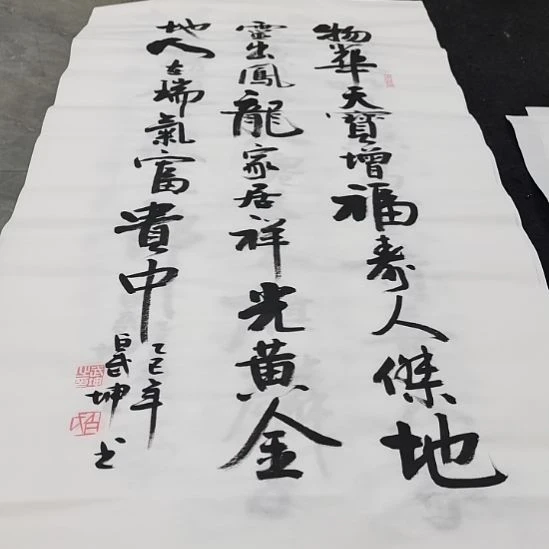 物華天寶增福壽人傑地
靈出鳳龍家居祥光黃金
地人在瑞氣富貴中
乙巳年
坤书